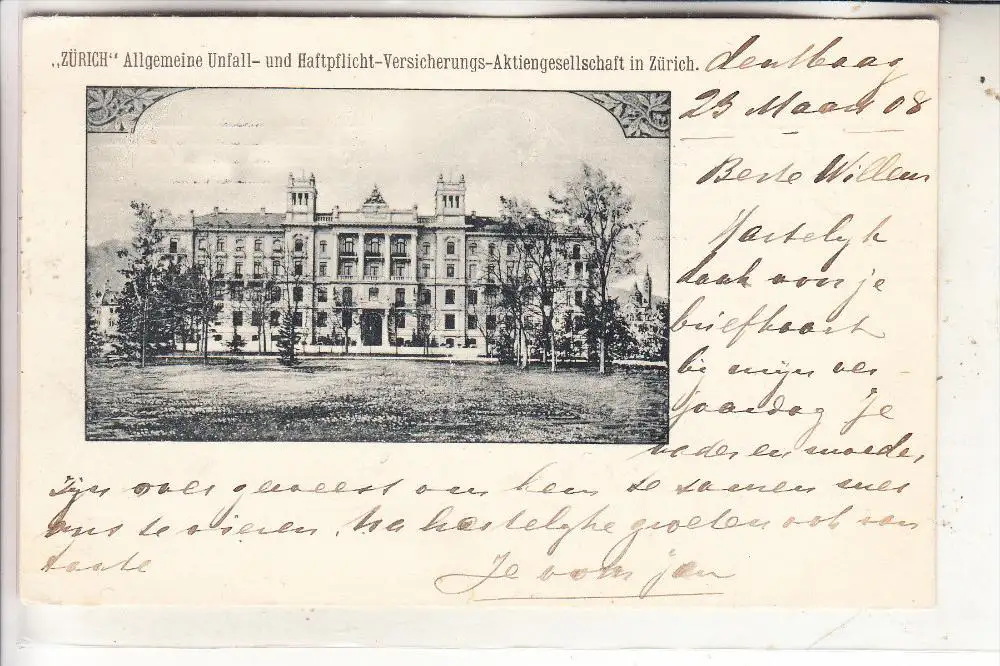 „ZÜRICH“ Allgemeine Unfall- und Haftpflicht-Versicherungs-Aktiengesellschaft in Zürich.
den Haag
23 Maart 08
Beste Willem
Hartelyk
dank voor je
briefkaart
bij mijn ver-
jaardag Je
vader en moeder
zyn over geweest om hem te samen met
ons te vieren. Na hartelyke groeten ook van
tante
Je oom Jan